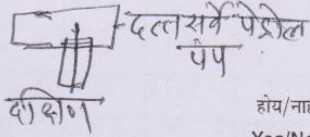 दत्त सर्वे पेट्रोल
पंप
दक्षिण
होय/नाह
Yes/No